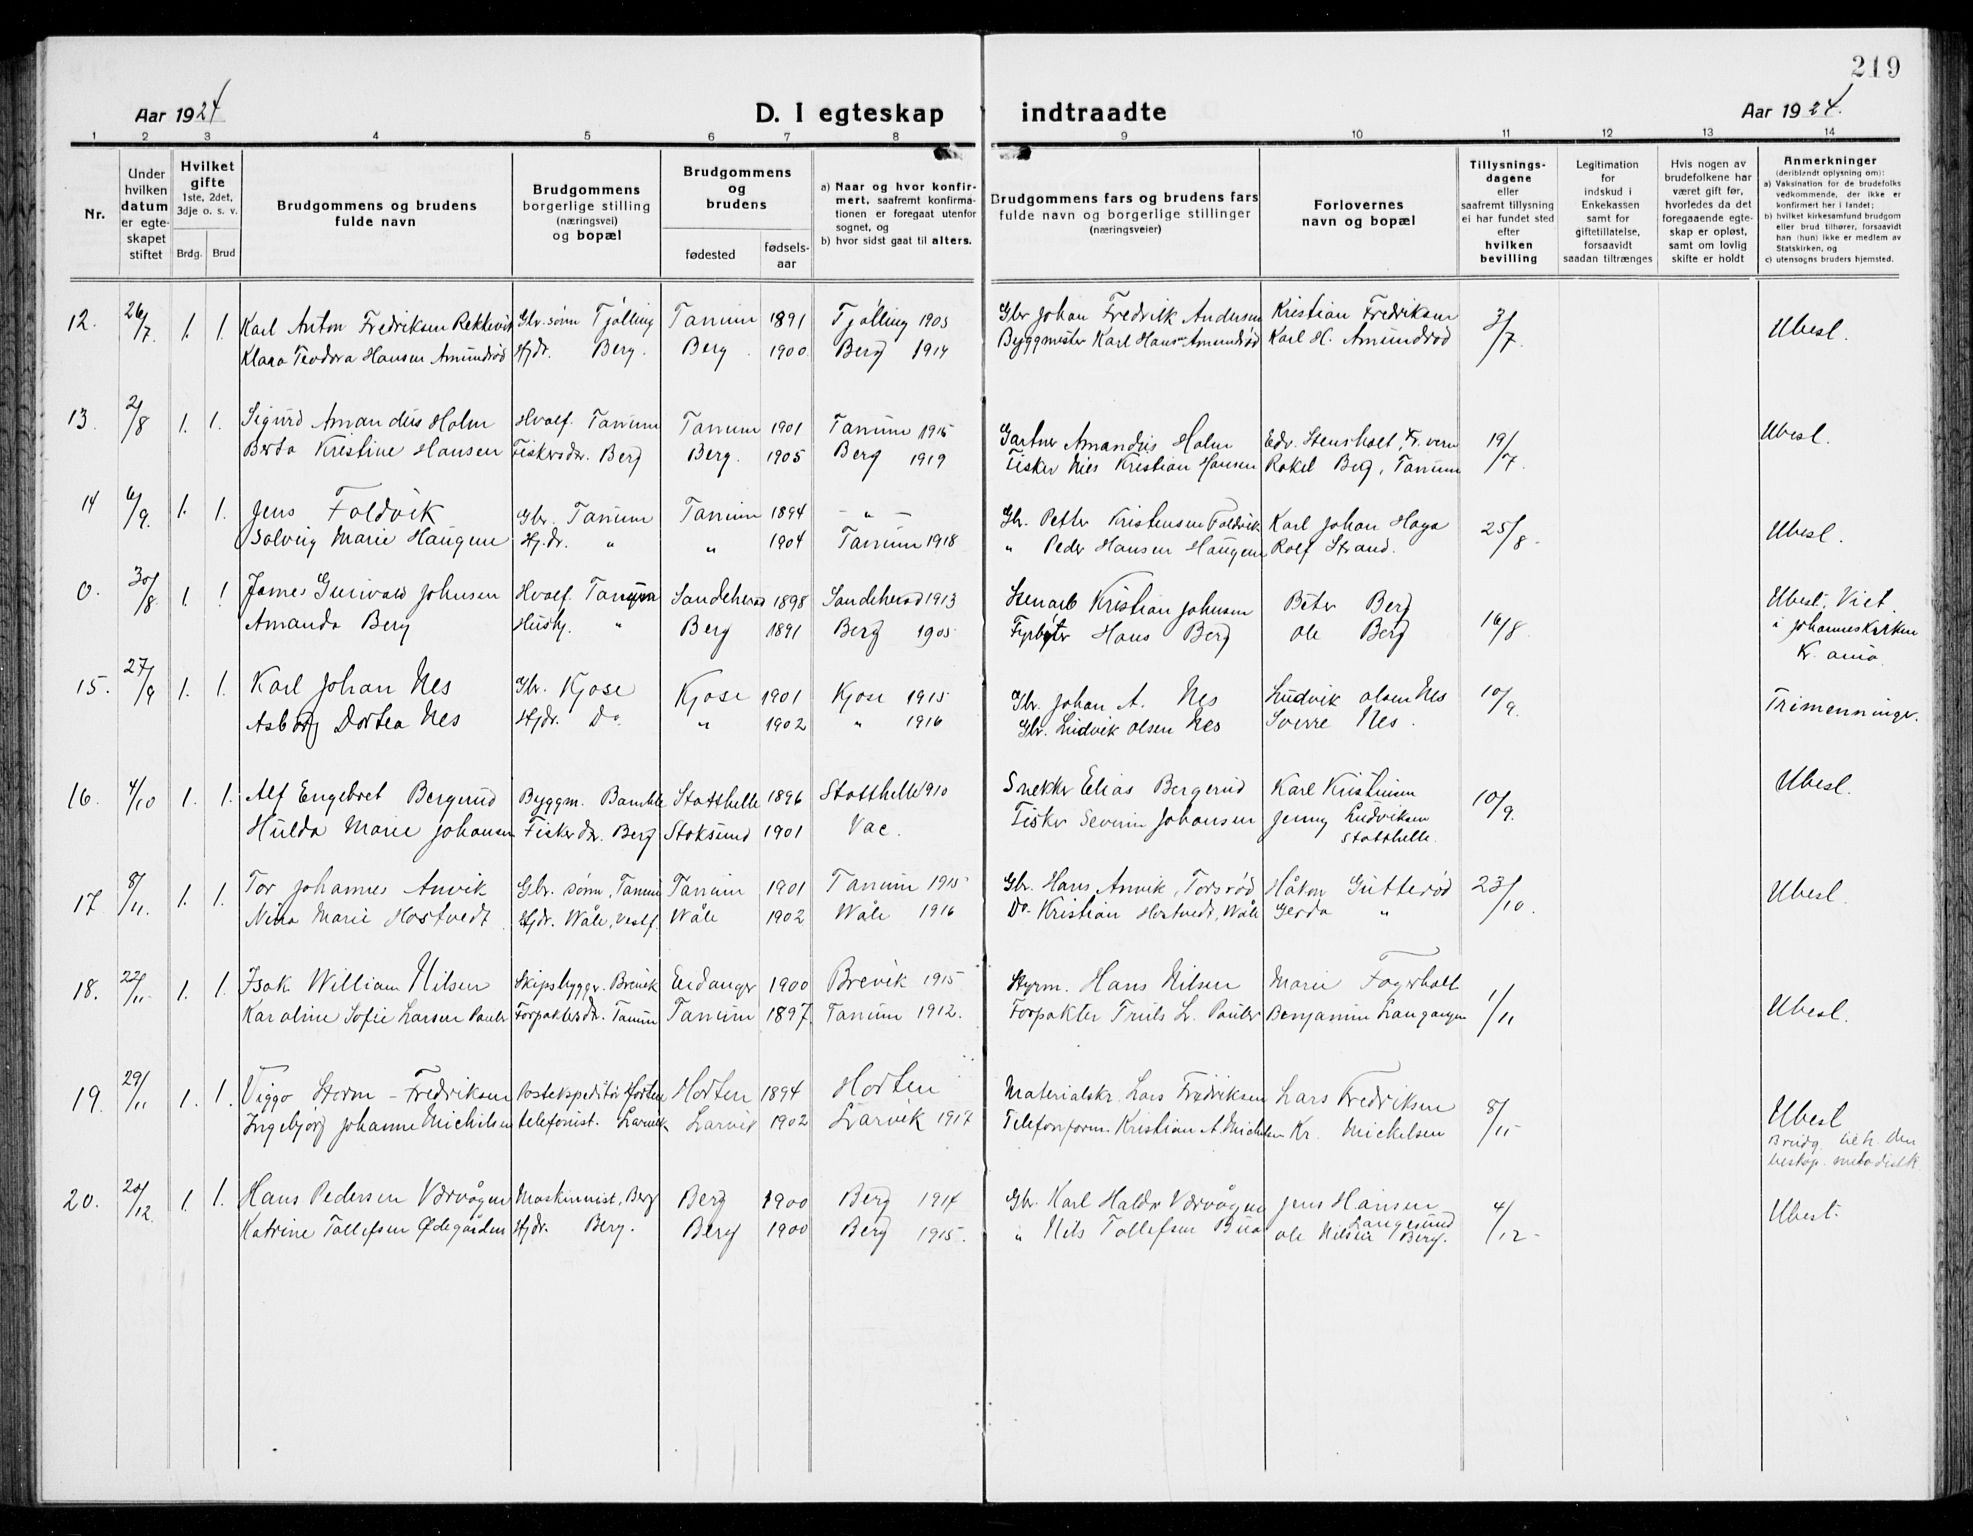 219
Aar 1924
D. I egteskap
indtraadte
Aar 1924.
1 2 3 4 5 6 7 8 9 10 11 12 13 14
Nr.
Under hvilken datum er egteskapet stiftet
Hvilket gifte 1ste, 2det, 3dje o. s. v.
Brdg. Brud
Brudgommens og brudens fulde navn
Brudgommens borgerlige stilling (næringsvei) og bopæl
Brudgommens og brudens
fødested
fødselsaar
a) Naar og hvor konfirmert, saafremt konfirmationen er foregaat utenfor sognet, og
b) hvor sidst gaat til alters.
Brudgommens fars og brudens fars fulde navn og borgerlige stillinger (næringsveier)
Forlovernes navn og bopæl
Tillysningsdagene eller saafremt tillysning ei har fundet sted efter hvilken bevilling
Legitimation for indskud i Enkekassen samt for giftetillatelse, forsaavidt saadan tiltrænges
Hvis nogen av brudefolkene har været gift før, hvorledes da det foregaaende egteskap er opløst, samt om lovlig skifte er holdt
Anmerkninger (deriblandt oplysning om):
a) Vaksination for de brudefolks vedkommende, der ikke er konfirmert her i landet;
b) hvilket kirkesamfund brudgom eller brud tilhører, forsaavidt han (hun) ikke er medlem av Statskirken, og
c) utensogns bruders hjemsted.
12. 26/7. 1. 1. Karl Anton Fredriksen Rekkevik Gbr. sønn Tjølling Tanum 1891 Tjølling 1905 Gbr Johan Fredrik Andersen Kristian Fredriksen 3/7. Ubesl.
Klara Teodora Hansen Amundrød Hjdr. Berg. Berg. 1900 Berg 1914 Byggmister Karl Hans Amundrød Karl H. Amundrød
13. 2/8 1. 1. Sigurd Amandus Holm Hvalf. Tanum Tanum 1901 Tanum 1915 Gartner Amandus Holm Edv. Stensholt, Fr. vern 19/7. Ubesl.
Berta Kristine Hansen Fiskersdr. Berg Berg. 1905 Berg 1919 Fisker Nils Kristian Hansen Rakel Berg, Tanum
14 6/9. 1. 1. Jens Foldvik Gbr. Tanum Tanum 1894 - " - Gbr. Petter Kristensen Foldvik Karl Johan Haga 25/8. Ubesl.
Solveig Marie Haugene Hjdr. " " 1904 Tanum 1918 " Peder Hansen Haugene Rolf Strand.
0. 30/8. 1. 1. James Gunvald Johnsen Hvalf. Tanum Sandeherad 1898 Sandeherad 1913 Stenarb Kristian Johnsen Peter Berg 16/8. Ubesl. Viet.
Amanda Berg Hush. " Berg 1891 Berg 1905 Fyrbøter Hans Berg Ole Berg i Johanneskirken
Kr. ania.
15. 27/9 1. 1. Karl Johan Nes Gbr. Kjose Kjose 1901 Kjose 1915 Gbr. Johan A. Nes Ludvik Olsen Nes 10/9. Trimenninger.
Asborg Dortea Nes Hjdr. Do. " 1902 " 1916 Gbr. Ludvik Olsen Nes Sverre Nes.
16. 4/10 1. 1. Alf Engebret Bergerud Byggm. Bamble Statthelle 1896 Statthelle 1910 Snekker Elias Bergerud Karl Kristensen 10/9. Ubesl.
Hulda Marie Johansen Fisker dr. Berg Stoksund 1901 Vac. Fisker Severin Johansen Jenny Ludviksen
Statthelle.
17. 8/11. 1. 1. Tor Johannes Anvik Gbr. sønn, Tanum Tanum 1901 Tanum 1915 Gbr. Hans Anvik, Torsrød Håkon Gutterød 23/10. Ubesl.
Nina Marie Hostvedt Hjdr. Wåle, Vestf. Wåle 1902 Wåle 1916 Do. Kristian Hostvedt, Wåle Gerda "
18. 22/11 1. 1. Isak William Nilsen Skipsbygger. Brevik Eidanger 1900 Brevik 1915 Styrm. Hans Nilsen Marie Fagerholt 1/11 Ubesl.
Karoline Sofie Larsen Pauler Forpaktersdr. Tanum Tanum 1897 Tanum 1912. Forpakter Truls L. Pauler Benjamin Langangen
19. 29/11 1. 1. Viggo Storm-Fredriksen Postekspeditør Horten Horten 1894 Horten Materialskr. Lars Fredriksen Lars Fredriksen 8/11 Ubesl
Ingebjørg Johanne Michelsen telefonist. Larvik Larvik 1902 Larvik 1917 Telefonform. Kristian A. Michelsen Kr. Mickelsen Brudg. tilh. den
biskop. metodistk.
20. 20/12. 1. 1. Hans Pedersen Værvågen Maskinist, Berg Berg 1900 Berg 1914 Gbr. Karl Haldor Værvågen Jens Hansen 4/12. Ubesl.
Langesund
Katrine Tollefsen Ødegården Hjdr. Berg. Berg 1900 Berg 1915. " Nils Tollefsen Bua Ole Nilsen Berg.